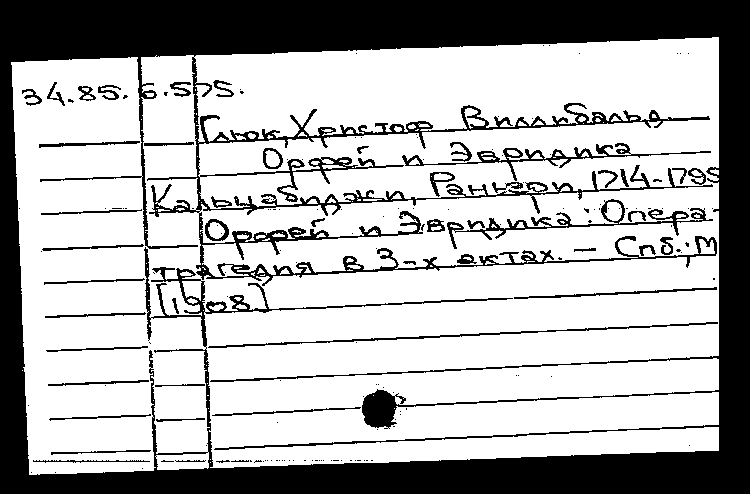 34.85.6.575.
Глюк, Христоф Виллибальд
Орфей и Эвридика
Кальцабиджи, Раньери, 1714-1795
Орфей и Эвридика: Опера-
трагедия в 3-х актах. — Спб.; М
[1908]